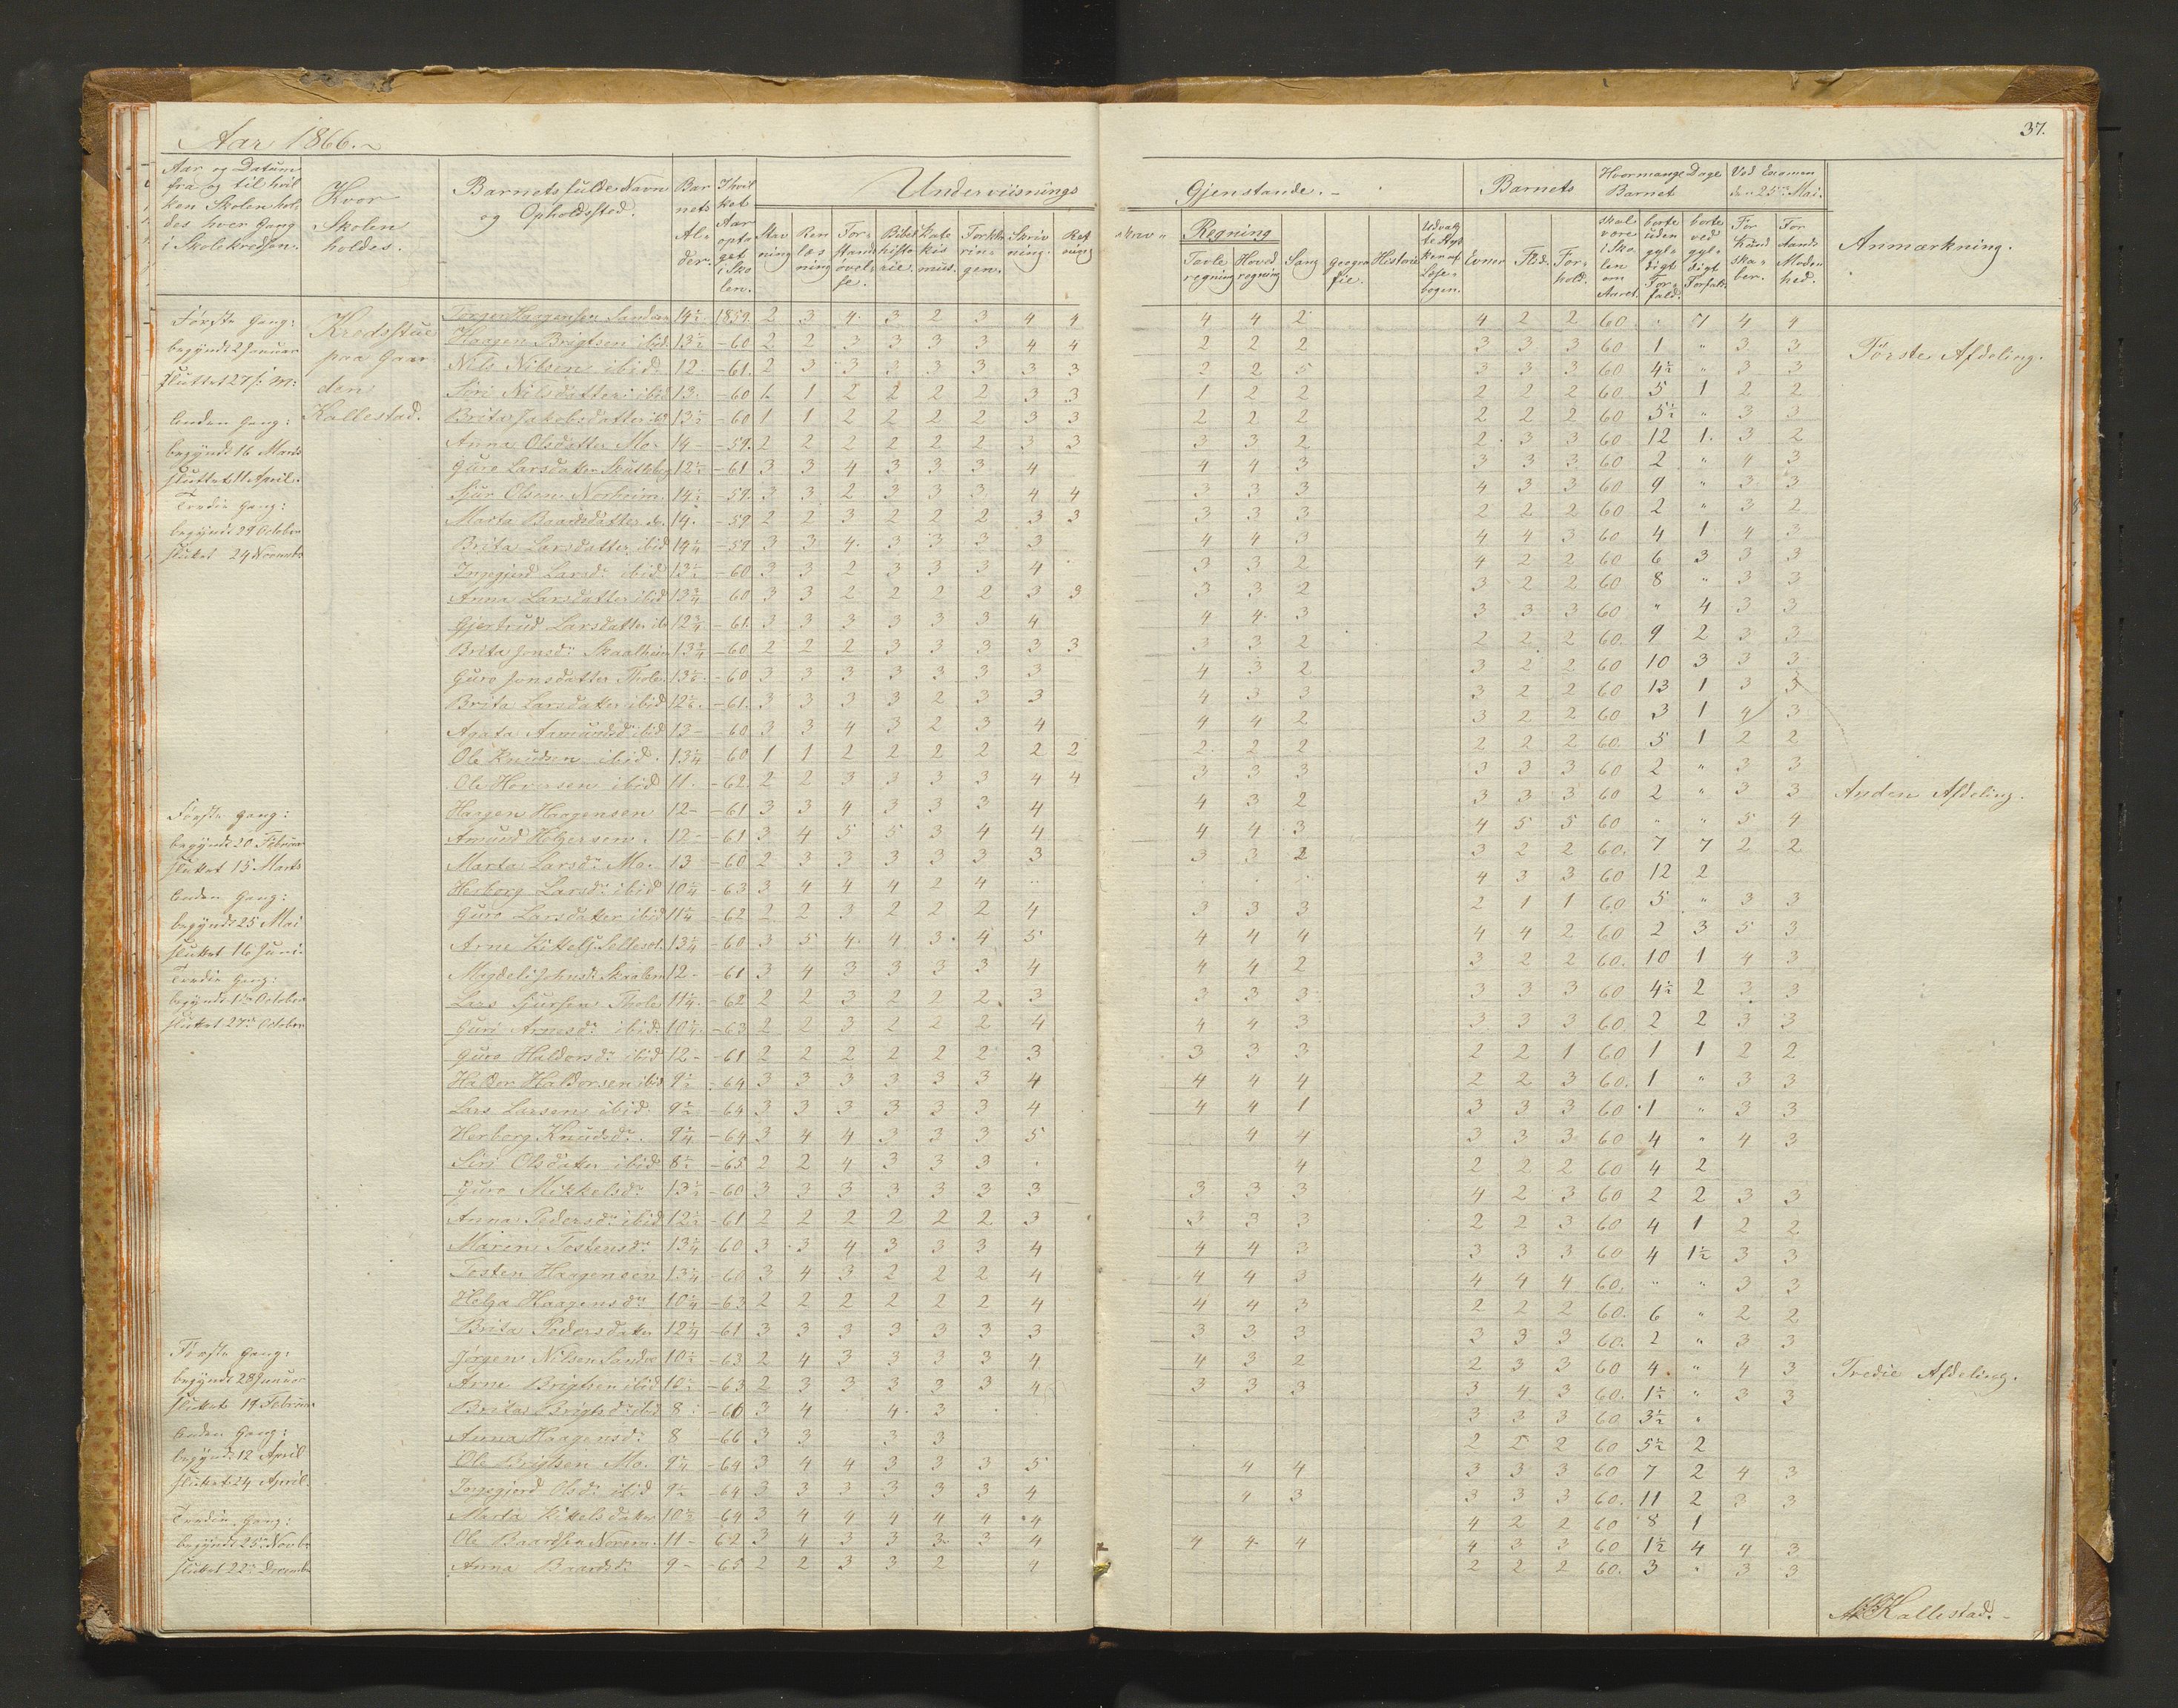 Aar 1866.
37.
Aar og Datum fra og til hvilken Skolen holdes hver Gang i Skolekredsen.
Hvor Skolen holdes.
Barnets fulde Navn og Opholdssted.
Barnets Alder.
I hvilket Aar optaget i Skolen.
Underviisnings Gjenstande.
Stavning
Renlæsning
Forstandsøvelse.
Bibelhistorie.
Katekismus.
Forklaringen.
Skrivning.
Retskriv
Regning
Tavleregning
Hovedregning
Sang
Geografie.
Historie
Udvalgte Stykker af Læsebogen.
Barnets
Evner
Flid.
Forhold.
Hvormange Dage Barnet
skal være i Skolen om Aaret.
borte uden gyldigt Forfald.
borte ved gyldigt Forfald.
Ved Examen den 25de Mai.
For Kundskaber.
For Aands Modenhed.
Anmærkning.
Første Gang:
begyndt 2 Januar
sluttet 27/1 M:
Anden Gang:
begyndt 16 Marts
sluttet 11 April.
Tredie Gang:
begyndt 29 October
sluttet 24 Novembr
Kredsstue paa Gaarden Kallestad.
Haagen Brigtsen ibid. 13½ -60 2 2 3 3 3 3 4 4 2 2 2 3 3 3 60 1 " 3 3
Første Afdeling.
Nils Nilsen ibid. 12 -61. 2 3 3 3 3 3 3 3 2 2 5 3 3 3 60 4½ " 3 3
Siri Nilsdatter ibid 13 -60 1 2 2 2 2 3 3 1 2 2 2 2 2 60 5 1 2 2
Brita Jakobsdatter ibd 13½ -60 1 1 2 2 2 2 3 3 2 2 2 2 2 2 60 5½ " 3 3
Anna Olsdatter Mo. 14 -59. 2 2 2 2 2 2 3 3 3 3 2 2 3 3 60 12 1 3 2
Guro Larsdatter 12½ -61 3 3 4 3 3 3 4 4 4 3 3 3 3 60 2 " 4 3
Sjur Olsen Norheim 14½ -59. 3 3 2 3 3 3 4 4 3 3 3 4 3 3 60 9 " 3 3
Marta Baardsdatter 14. -59 2 2 3 2 2 2 3 3 3 3 3 2 2 2 60 2 " 3 2
Brita Larsdatter ibid 14¼ -59 3 3 4 3 3 3 3 4 4 3 4 4 3 60 4 1 4 3
Ingegjerd Larsdr ibid 13½ -60 3 3 2 3 3 3 4 3 3 2 4 2 2 60 6 3 3 3
Anna Larsdatter ibid 13¾ -60 3 3 2 2 2 2 3 3 3 3 2 3 2 2 60 8 " 3 3
Gjertrud Larsdatter ib 12¾ -61. 3 3 3 3 3 3 4 4 4 3 3 3 3 60 " 4 3 3
Brita Jonsdr Skaalheim 13¾ -60 2 2 2 3 3 3 3 3 3 3 2 2 2 2 60 9 2 3 3
Guro Jonsdatter -60 3 3 3 3 3 3 3 4 3 2 3 2 2 60 10 3 3 3
Brita Larsdatter ibid -61. 3 3 3 3 2 3 3 4 3 3 3 2 2 60 13 1 3 3
Agata Aamundsdr ibid 13 -60 3 3 4 3 2 3 4 4 4 2 3 2 2 60 3 1 4 3
Ole Knudsen ibid. 13¼ -60 1 1 2 2 2 2 2 2 2 2 2 2 2 2 60. 5 1 2 2
Ole ibid 11 -62 2 2 3 3 3 3 4 4 3 3 3 3 3 3 60 2 " 3 3
Haagen Haagensen 12 -61 3 3 4 3 3 3 4 4 3 2 3 3 3 60 2 " 3 3
Anden Afdeling.
Første Gang:
begyndt 20 Februar
sluttet 15 Marts
Anden Gang:
begyndt 25 Mai
sluttet 16 Juni.
Tredie Gang:
begyndt 1ste October
sluttet 27de October
Amund Helgersen. 12 -61 3 4 5 5 3 4 4 4 4 3 4 5 5 60 " " 5 4
Marta Larsdr Mo. 13 -60 2 3 3 3 3 3 3 3 3 2 3 2 2 60. 7 7 2 2
Herborg Larsdr ibid 10¼ -63 3 4 4 4 2 4 4 3 3 60 12 2
Guro Larsdatter ibid 11¼ -62 2 2 3 2 2 2 4 3 3 3 2 1 1 60 5 " 3 3
Arne 13¼ -60 3 5 4 4 3 4 5 4 4 4 4 4 2 60 2 3 5 3
Magdeli Johnsdr 12 -61 3 4 3 3 3 3 4 4 4 2 3 2 2 60. 10 1 4 3
Lars Sjursen 11¼ -62 2 2 3 2 2 2 3 3 3 3 3 3 3 60 4½ 2 3 3
Guri Arnesdr ibid. 10¼ -63 2 2 3 2 2 2 4 4 4 3 3 3 3 60. 2 2 3 3
Guro Haldorsdr ibid 12 -61 2 2 2 2 2 2 3 3 3 3 2 2 1 60 1 1 2 2
Haldor Haldorsen ibid 9½ -64 3 3 3 3 3 3 4 4 4 4 2 2 3 60. 1 " 3 3
Lars Larsen ibid. 9½ -64 3 3 3 3 3 3 4 4 4 1 3 3 3 60 1 " 3 3
Herborg Knudsdr. 9¼ -64 3 4 4 3 3 3 5 4 4 3 3 3 60 4 " 4 3
Siri Olsdatter ibid 8½ -65 2 2 4 3 3 3 4 2 2 2 60 4 2
Guro Mikkelsdr 13½ -60 3 3 3 3 3 3 3 3 3 3 4 2 3 60 2 2 3 3
Anna Pedersdr ibid 12½ -61 2 2 2 2 2 2 3 3 3 3 2 2 3 60 4 1 2 2
Maren Tostensdr 13¼ 60 3 3 4 3 3 3 4 4 4 3 3 3 3 60 4 1½ 3 3
Tosten Haagensen 13¼ -60 3 4 3 2 2 2 4 4 4 3 4 4 4 60. " " 3 3
Helga Haagensdr 10¼ -63 2 2 2 2 2 2 4 4 4 3 2 2 2 60. 6 " 2 2
Brita Pedersdatter 12¼ -61 3 3 3 3 3 3 3 3 3 3 3 3 3 60. 2 " 3 3
Jørgen Nilsen 10½ -63 2 4 3 3 3 3 4 4 3 2 2 3 3 60 4. " 4 3
Tredie Afdeling.
Første Gang:
begyndt 28 Januar
sluttet 19 Februar
Anden Gang:
begyndt 12 April
sluttet 24 April
Tredie Gang:
begyndt 25de Novbr
sluttet 22de December
Arne Brigtsen ibid 10½ -63 2 3 3 3 3 3 4 3 3 3 3 4 3 60. 1½ " 3 3
Brita Brigtsdr ibid 8 -66 3 4 4 3 3 3 3 60 3½ "
Anna Haagensdr 8 -66 3 3 3 3 2 2 2 60 5½ 2
Ole Brigtsen Mo. 9¼ -64 3 4 4 3 3 3 5 4 4 3 3 3 60 7 2 4 3
Ingegjerd Olsdr ibid 9½ -64 3 3 3 3 3 3 4 4 3 3 3 3 60. 11 2 3 3
Marta Kittelsdatter 10½ 64 3 4 4 4 4 4 4 4 2 2 60 8 1
Ole Baardsen 11 - 62 3 4 3 3 3 3 4 4 4 4 4 3 3 60 1½ 4 4 3
Anna Baardsdr 9 - -65 2 2 3 3 2 4 2 2 2 60. 3 " 3 3
Kallestad.